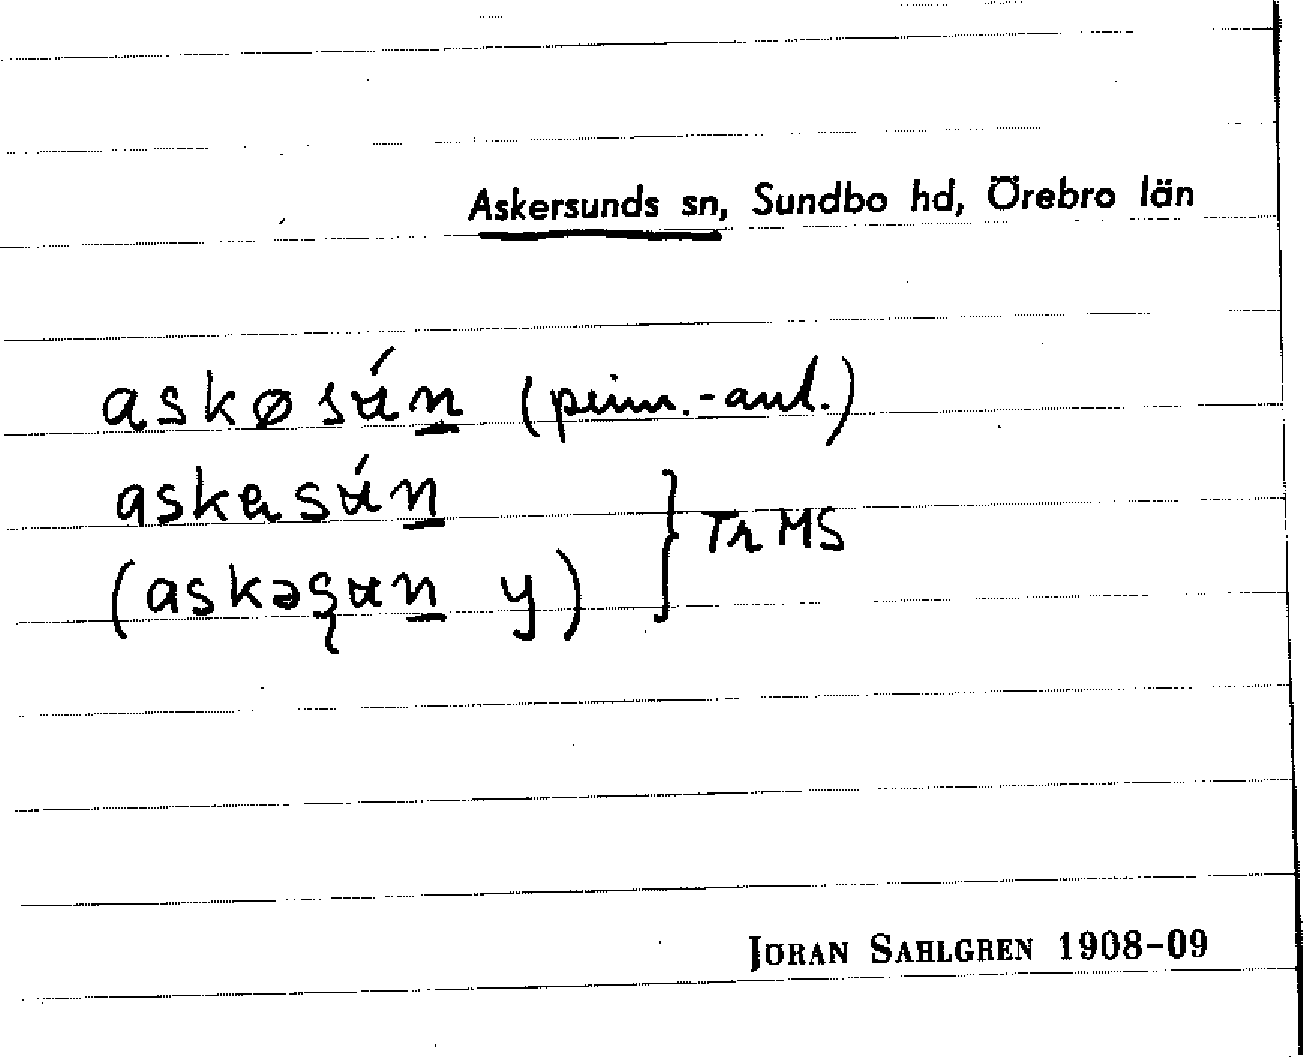 Askersunds sn, Sundbo hd, Örebro län
askøsʉ́n̲ (prim.-ant.)
askɐsʉ́n̲
(askəʂʉn̲ y) } Tr MS
JÖRAN SAHLGREN 1908-09